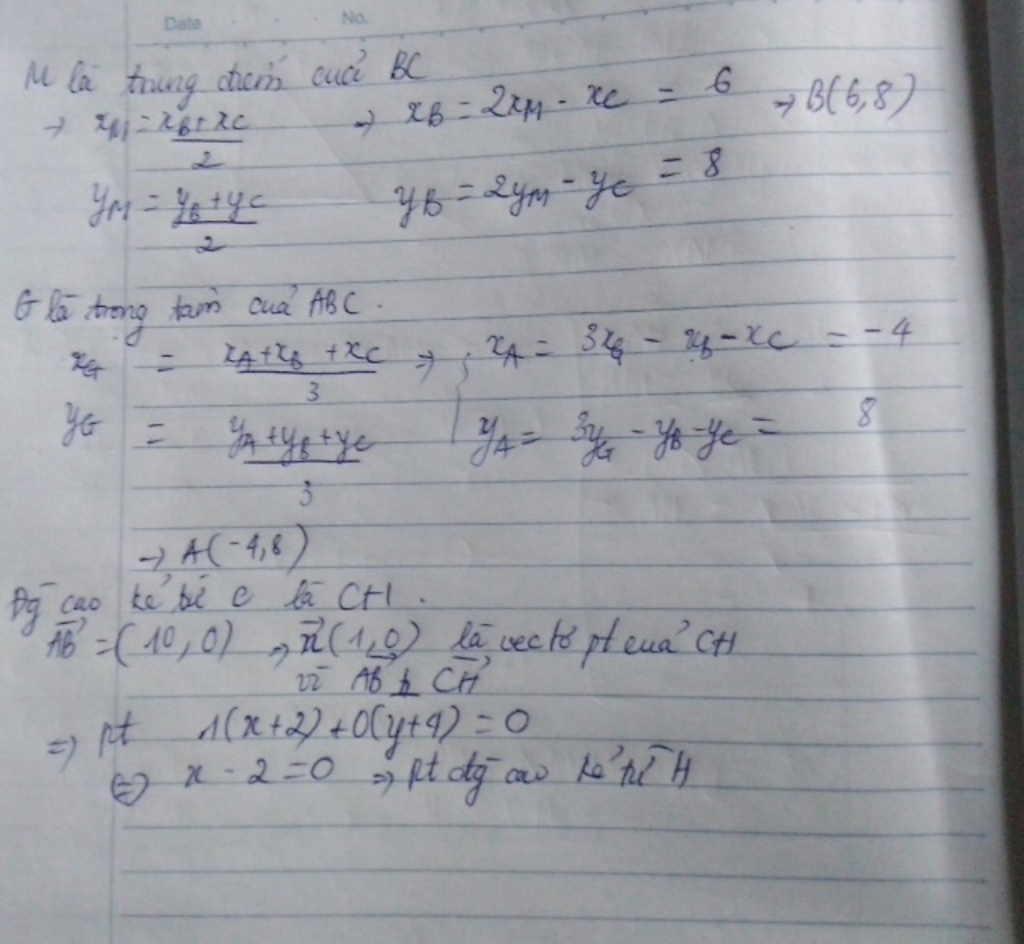 Date No.
M là trung điểm cuả BC
→ xM = xB+xC / 2 → xB = 2xM - xC = 6 → B(6,8)
yM = yB+yC / 2 yB = 2yM - yC = 8
G là trọng tâm cuả ABC.
xG = xA+xB+xC / 3 → xA = 3xG - xB - xC = -4
yG = yA+yB+yC / 3 yA = 3yG - yB - yC = 8
→ A(-4,8)
Đg cao kẻ từ C là CH.
AB = (10,0) → n(1,0) là vectơ pt cuả CH
vì AB ⊥ CH
⇒ pt 1(x+2)+0(y+4)=0
⇔ x - 2 = 0 ⇒ pt đg cao kẻ từ H